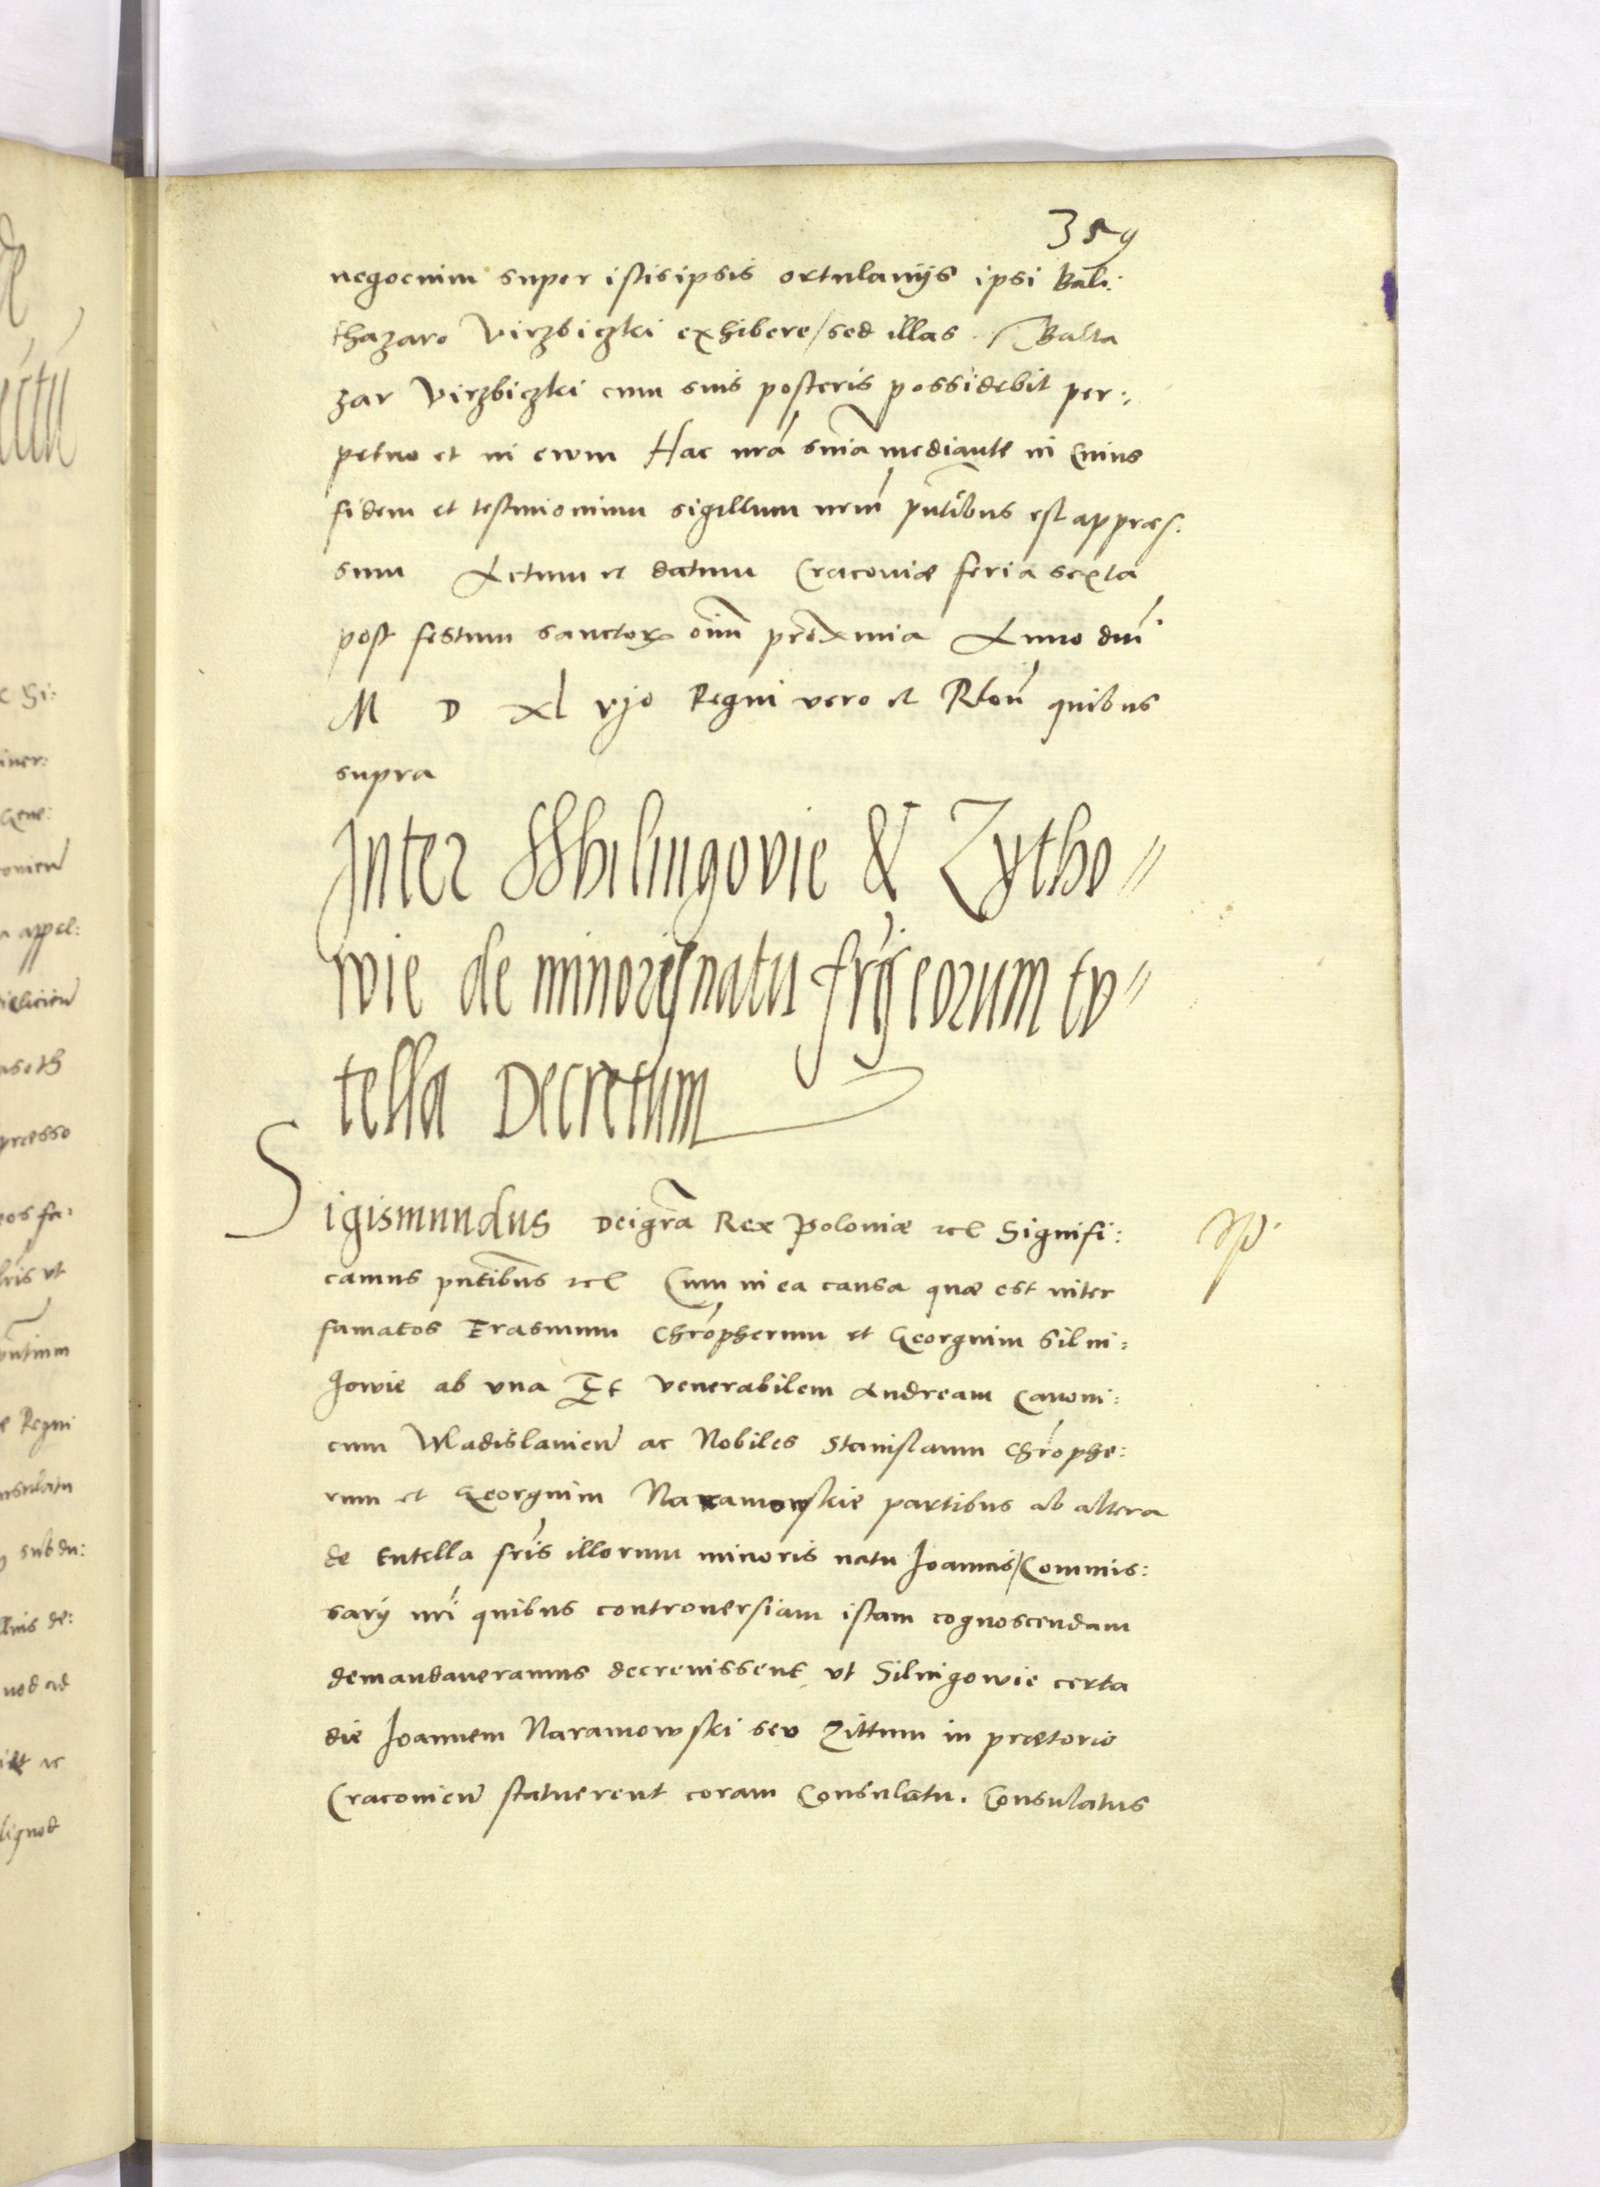 359
negocium super istis ipsis ortulanijs ipsi Bal:
thazaro Virzbiczki exhibere / sed illas Balta
zar Virzbiczki cum suis posteris possidebit per:
petuo et in evum Hac nrã snia mediante in Cuius
fidem et testimonium sigillum nrm̃ pntibus est appres:
sum Actum et datum Cracoviæ feria sexta
post festum sanctor oĩm proxmia Anno dni
M D xl vjo Regni vero et Rlõn quibus
supra
Inter Schilingovie & Zytho=
wie de minoris natu fris eorum tu=
tella Decretum
Sigismundus Dei grã Rex Poloniæ etc Signifi:
camus pntibus etc Cum in ea causa quæ est inter
famatos Erasmum Chrõpherum et Georgium Silni:
gowie ab una Et Venerabilem Andream Canoni:
cum Wladislavien ac Nobiles Stanislaum Chrõphe:
rum et Georgium Naramowskie partibus ab altera
de tutella fris illorum minoris natu Joannis / Commis:
sarij nri quibus controversiam istam cognoscendam
demandaveramus decrevissent ut Silnigowie certa
die Joannem Naramowski seu Zittum in prætorio
Cracovien statuerent coram Consulatu. Consulatus